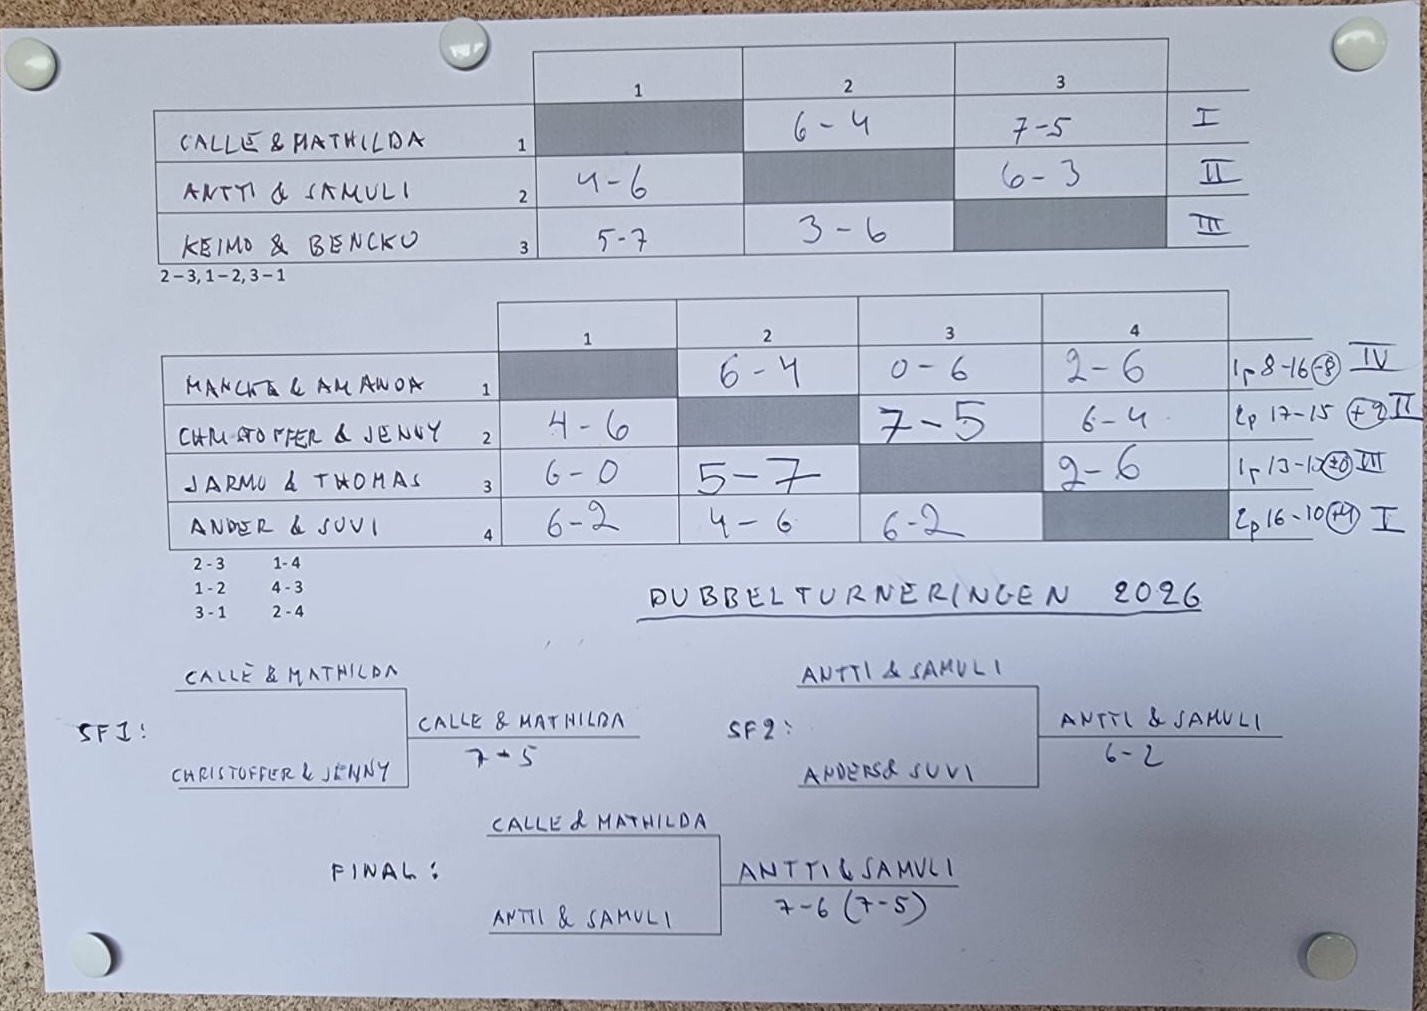 1 2 3
CALLE & MATHILDA 1 6-4 7-5 I
ANTTI & SAMULI 2 4-6 6-3 II
KEIMO & BENCKU 3 5-7 3-6 III
2-3, 1-2, 3-1
1 2 3 4
& AMANDA 1 6-4 0-6 2-6 1p 8-16 -8 IV
CHRISTOFFER & JENNY 2 4-6 7-5 6-4 2p 17-15 +2 II
JARMO & THOMAS 3 6-0 5-7 2-6 1p 13-13 ±0 III
ANDER & SUVI 4 6-2 4-6 6-2 2p 16-10 I
2-3 1-4
1-2 4-3
3-1 2-4
DUBBELTURNERINGEN 2026
CALLE & MATHILDA ANTTI & SAMULI
SF1: CALLE & MATHILDA SF2: ANTTI & SAMULI
7-5 6-2
CHRISTOFFER & JENNY ANDERS & SUVI
CALLE & MATHILDA
FINAL: ANTTI & SAMULI
7-6 (7-5)
ANTTI & SAMULI